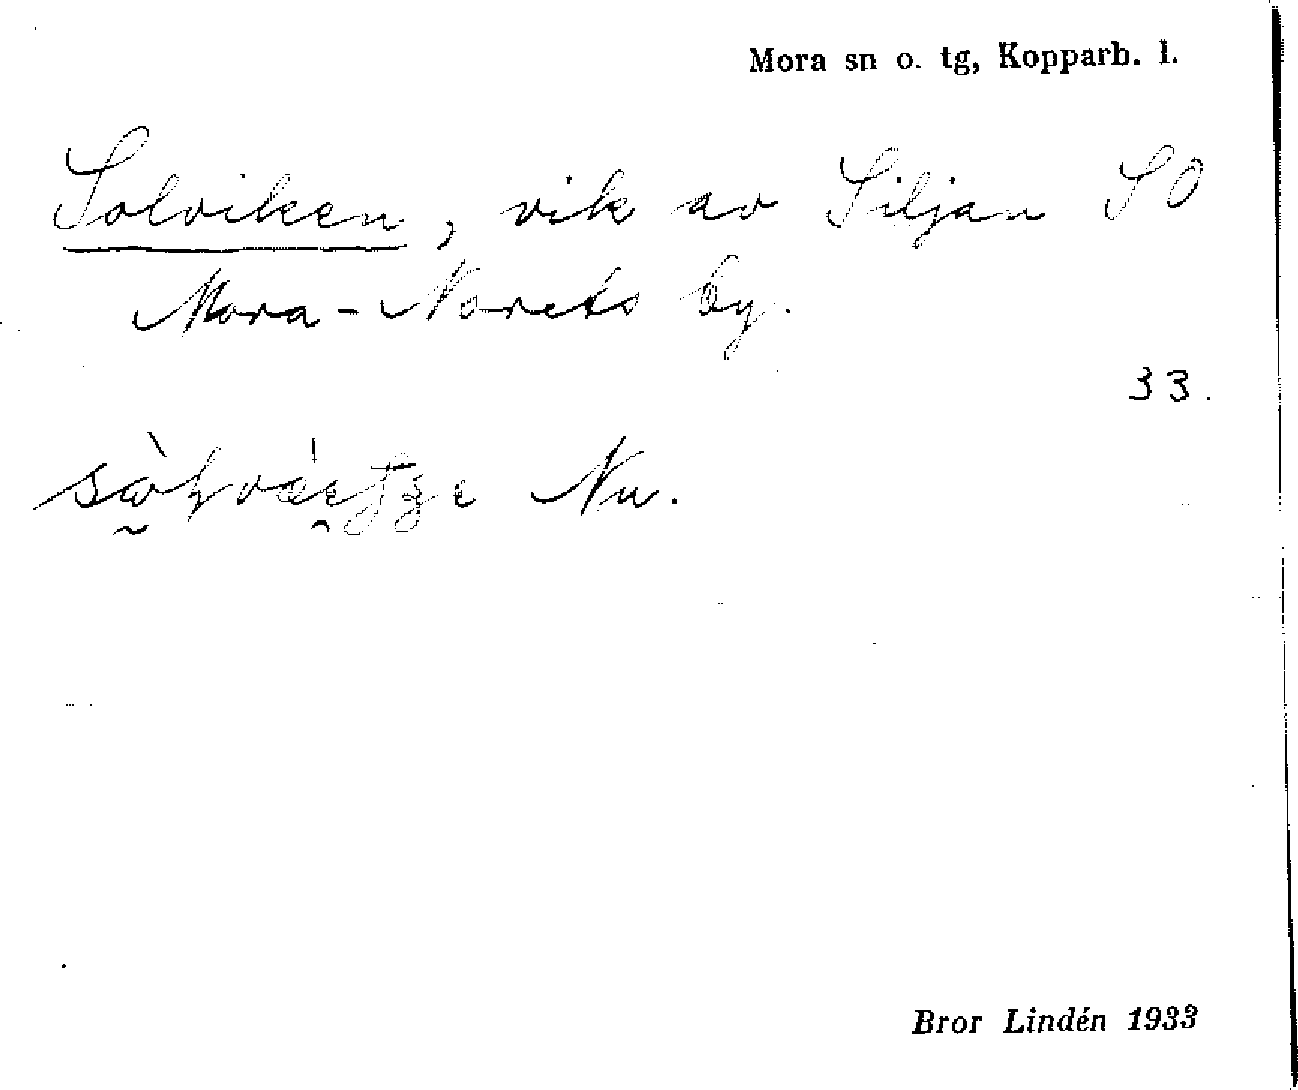 Mora sn o. tg, Kopparb. l.
Solviken, vik av Siljan SO
Mora-Norets by.
33.
Nu.
Bror Lindén 1933